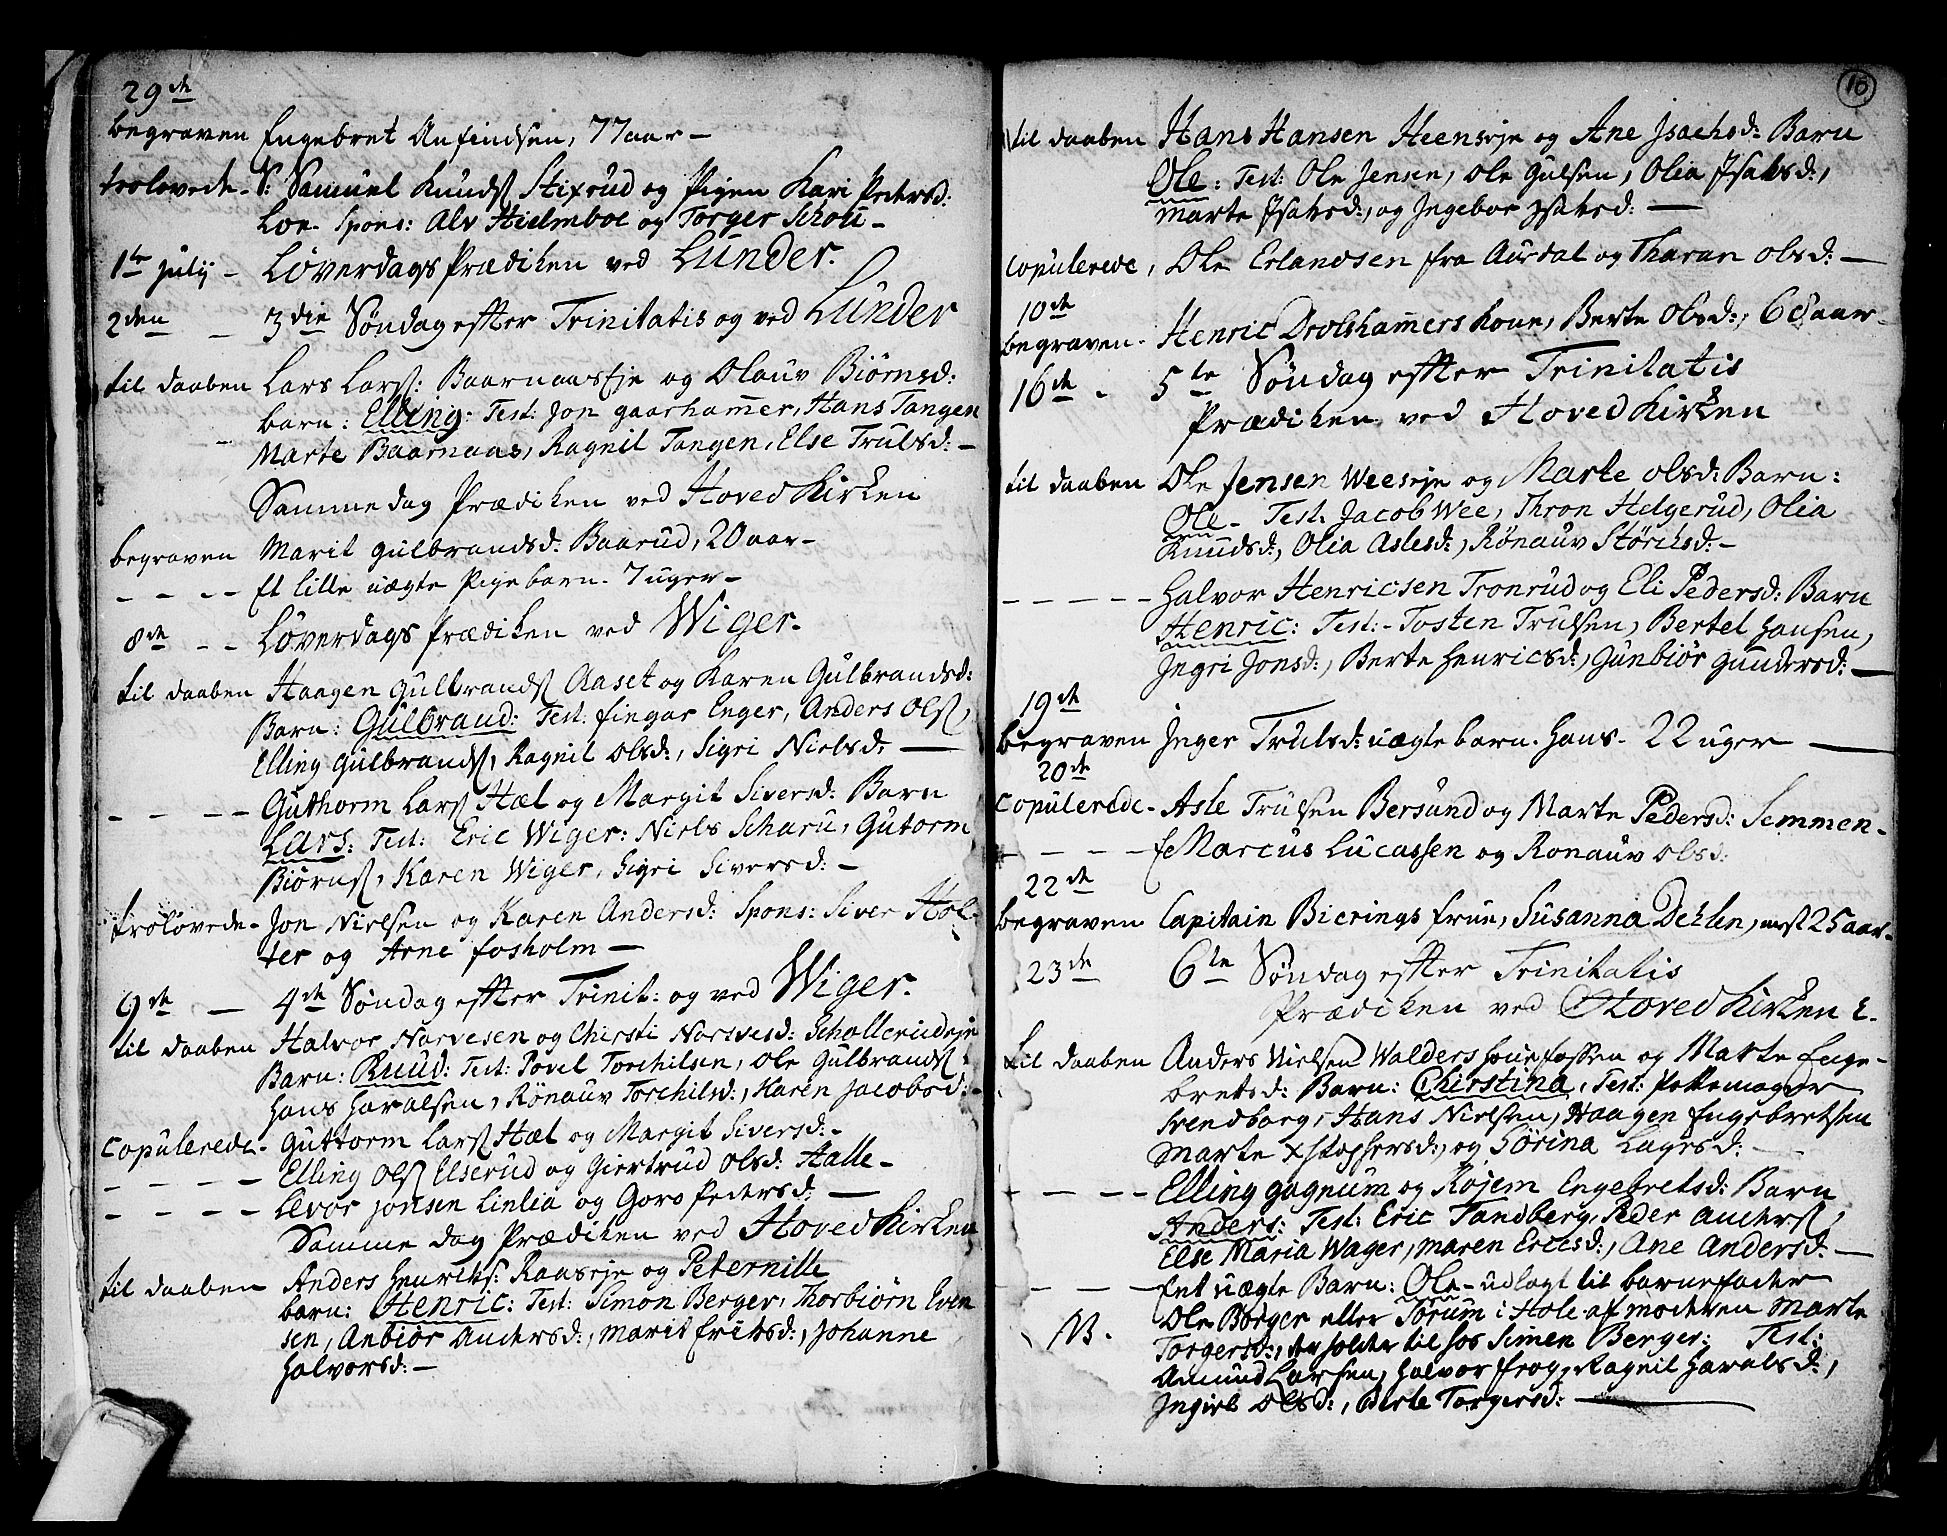 29de
begraven Engebret Anfindsen, 77 aar –
trolovede – S: Samuel Knuds. Stixrud og Pigen Kari Pedersd:
Loe. Spons: Alv Hielmboe og Torger Schou –
1te july – Løverdags Prædiken ved Lunder.
2den – 3die Søndag effter Trinitatis og ved Lunder
til daaben Lars Lars: Baarnaasеje og Olauv Biörnsd:
barn: Elling: Test: Jon gaarhammer, Hans Tangen
Marte Baarnaas, Ragnil Tangen, Else Trulsd: –
Samme dag Prædiken ved Hoved Kirken
begraven Marit gulbrandsd: Baarud, 20 aar –
– – – – Et lille uægte Pigebarn. 7 uger –
8de – – Løverdags Prædiken ved Wiger –
til daaben Haagen Gulbrands. Aaset og Karen Gulbrandsd:
Barn: Gulbrand: Test: fingar Enger, Anders Ols.,
Elling gulbrands., Ragnil Olsd:, Sigri Nielsd: —
– – – – Guthorm Lars. Hæl og Margit Siversd: Barn
Lars: Test: Eric Wiger: Niels Scharu, Gutorm
Biörns., Karen Wiger, Sigri Siversd: –
trolovede – Jon Nielsen og Karen Andersd: Spons: Siver Hol-
ter og Arne fosholm —
9de — 4de Søndag effter Trinit: og ved Wiger.
til daaben Halvor Narvesen og Chirsti Narvesd: Schollerudeje
Barn: Knud: Test: Povel Torchilsen, Ole Gulbrands.
Hans Haralsen, Rönauv Torchilsd:, Karen Jacobsd: –
Copulerede – Guttorm Lars. Hæl og Margit Siversd: –
– – – – Elling Ols. Elserud og Giertrud Olsd: Halle –
– – – – Levor Jonsen Linlia og Goro Pedersd: —
Samme dag Prædiken ved Hoved Kirken
til daaben Anders Henriks: Raaseje og Peternille
barn: Henric: Test: Simon Berger, Thorbiörn Even
sen, Anbiör Andersd:, Marit friksd:, Johanne
Halvorsd: –
10
til daaben Hans Hansen Heenseje og Ane Jsachsd: Barn
Ole: Test: Ole Jensen, Ole Gulsen, Olia Jsaksd:,
Marte Jsaksd:, og Jngebor Jsaksd: —
Copulerede, Ole Erlandsen fra Aurdal og Tharan Olsd: —
10de
begraven – Henric Drolshammers Kone, Berte Olsd:, 68 aar –
16de – 5te Søndag effter Trinitatis
Prædiken ved Hoved Kirken
til daaben Ole Jensen Weeseje og Marte Olsd: Barn:
Ole – Test: Jacob Wee, Thron Helgerud, Olia
Knudsd:, Olia Aslesd:, Rönauv Störchsd: –
– – – – – Halvor Henricsen Tronrud og Eli Pedersd: Barn
Henric: Test: – Tosten Trulsen, Bertel Hansen,
Jngri Jonsd:, Berte Henricsd:, Gunbiör Gundersd: —
19de
begraven Jnger Trulsd: uægte barn. Hans – 22 uger —
20de
Copulerede – Asle Trulsen Bersund og Marte Pedersd: Semmen –
– – – – Marcus Lucassen og Ronauv Olsd:
22de
begraven Capitain Bierings frue, Susanna Dehlen, 25 aar –
23de 6te Søndag effter Trinitatis
Prædiken ved Hoved Kirken
til daaben Anders Nielsen Walders Hönefossen og Marte Enge-
bretsd: Barn: Chirstina, Test: Pottemager
Svendborg, Hans Nielsen, Haagen Engebretsen
Marte Xstophersd:, og Sörina Lagesd: –
– – – – Elling gagnum og Röjem Engebretsd: Barn
Anders: Test: Eric Tandberg, Peder Anders.,
Else Maria Wager, Maren Ericsd:, Ane Andersd: —
– – – – Ent uægte Barn: Ole – udlagt til barnefader
NB. Ole Borger eller Torum i Hole af moderen Marte
Torgersd:, der holder til hos Simen Berger; Test:
Amund Larsen, Halvor frog, Ragnil Haralsd:,
Jngier Olsd:, Berte Torgersd: —